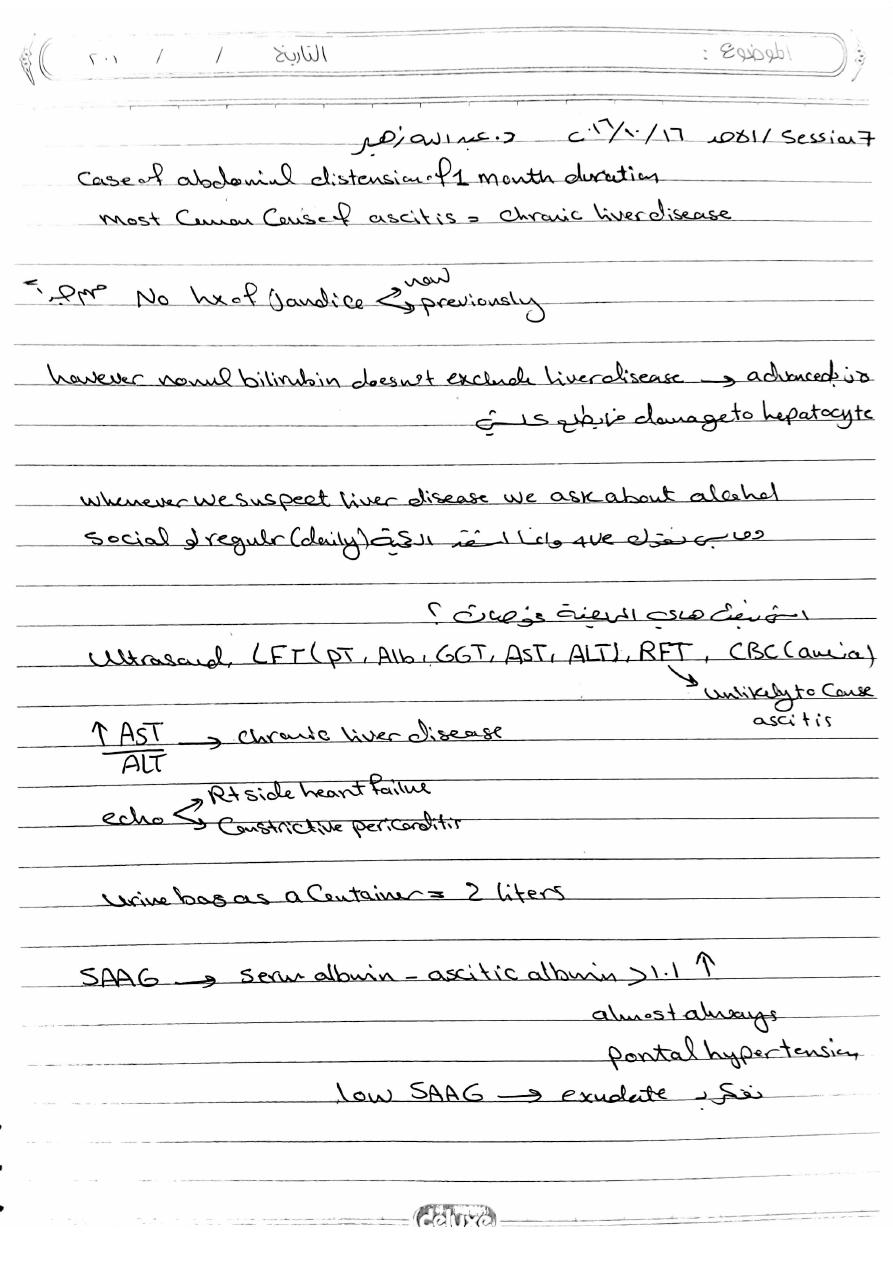 الموضوع : التاريخ / / ٢٠١
Session 7 / الاحد ٢٠١٦/١٠/١٦ د. عبدالله زهير
Case of abdominal distension of 1 month duration
most Common Cause of ascitis = chronic liver disease
No hx of Jandice now
previously
however normal bilirubin doesn't exclude liver disease → advanced
damage to hepatocyte
whenever we suspect liver disease we ask about alcohol
social or regular (daily) الكمية
Ultrasound, LFT (PT, Alb, GGT, AST, ALT), RFT, CBC (anemia)
unlikely to Cause
ascitis
↑ AST → chronic liver disease
ALT
Rt side heart failure
echo
Constrictive pericarditis
Urine bag as a Container = 2 liters
SAAG → serum albumin - ascitic albumin > 1.1 ↑
almost always
portal hypertension
low SAAG → exudate نفكر بـ
deluxe